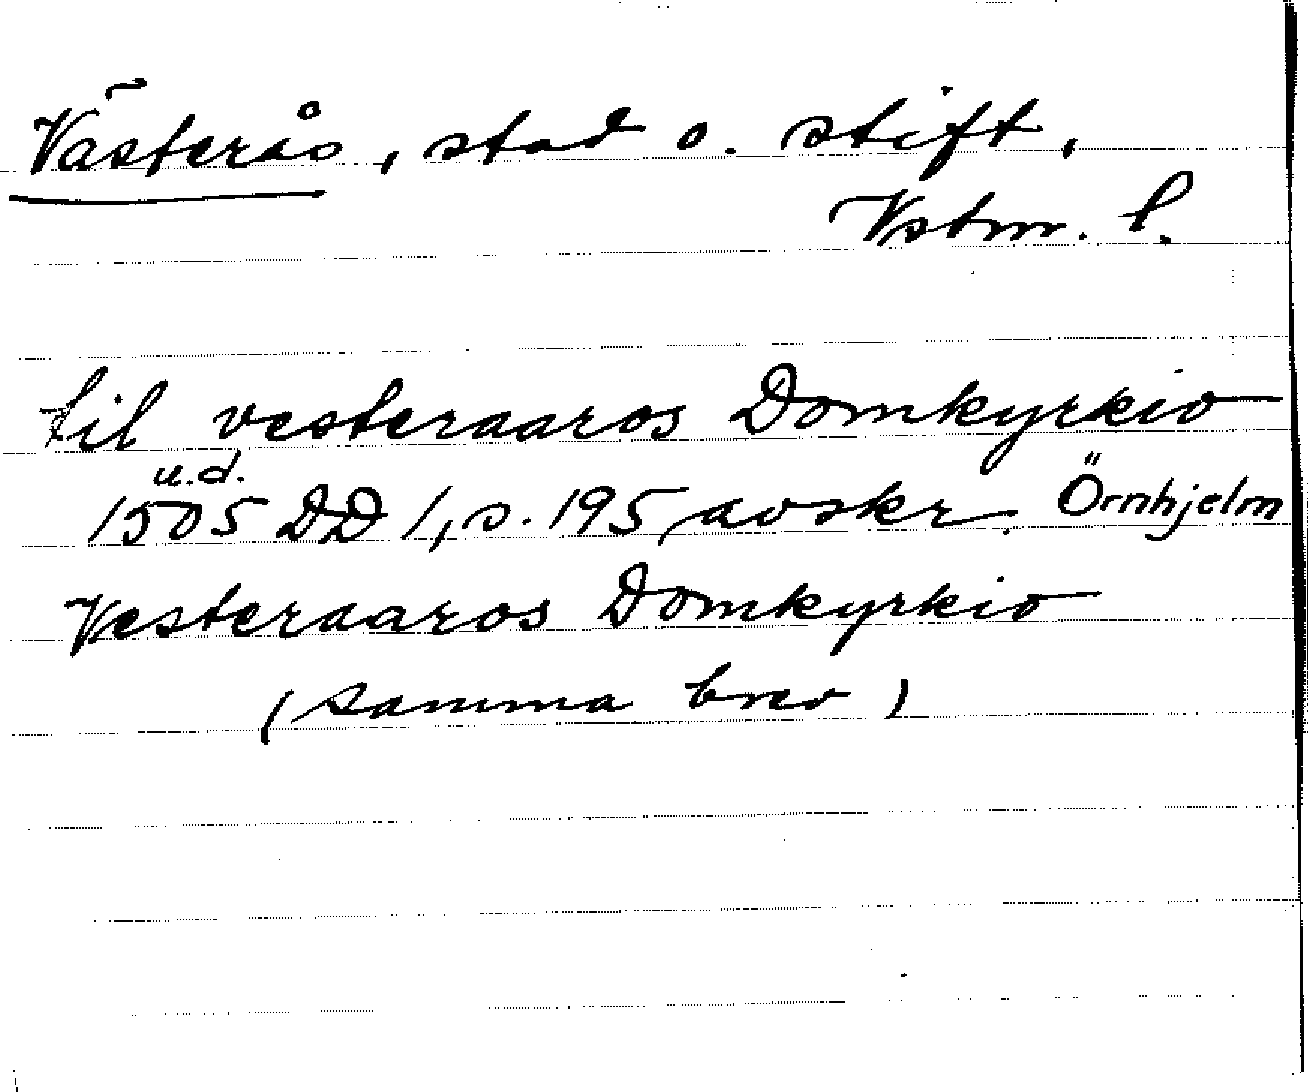 Västerås, stad o. stift,
Vstm. l.
til vesteraaros Domkyrkio
u.d.
1505 DD 1, s. 195 avskr. Örnhjelm
Vesteraaros Domkyrkio
(samma brev)